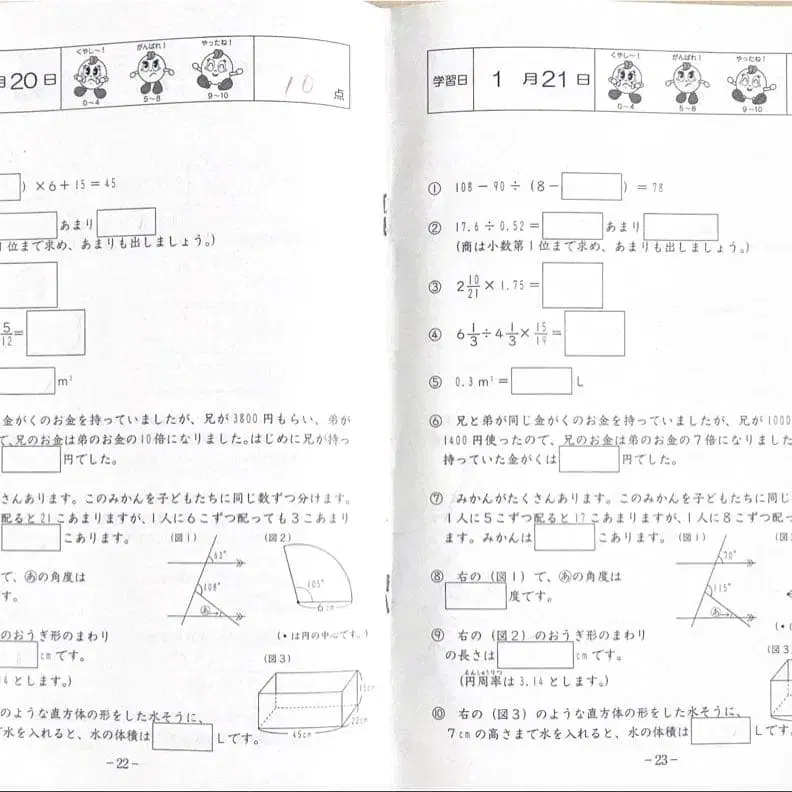 月20日
くやし〜!
0〜4
がんばれ!
5〜8
やったね!
9〜10
10点
)×6+15=45
あまり
1位まで求め、あまりも出しましょう。)
5/12=
m³
金がくのお金を持っていましたが、兄が3800円もらい、弟が
で、兄のお金は弟のお金の10倍になりました。はじめに兄が持っ
円でした。
さんあります。このみかんを子どもたちに同じ数ずつ分けます。
配ると21こあまりますが、1人に6こずつ配っても3こあまり
こあります。
(図1)
(図2)
63°
108°
あ
105°
6cm
で、あの角度は
す。
(•は円の中心です。)
のおうぎ形のまわり
cmです。
14とします。)
(図3)
15cm
22cm
45cm
のような直方体の形をした水そうに、
で水を入れると、水の体積は Lです。
-22-
学習日 1月21日
くやし〜!
0〜4
がんばれ!
5〜8
やったね!
9〜10
① 108-90÷(8- )=78
② 17.6÷0.52= あまり
(商は小数第1位まで求め、あまりも出しましょう。)
③ 2 10/21×1.75=
④ 6 1/3÷4 1/3×15/19=
⑤ 0.3m³= L
⑥ 兄と弟が同じ金がくのお金を持っていましたが、兄が1000
1400円使ったので、兄のお金は弟のお金の7倍になりました
持っていた金がくは 円でした。
⑦ みかんがたくさんあります。このみかんを子どもたちに同じ
1人に5こずつ配ると17こあまりますが、1人に8こずつ配っ
ます。みかんは こあります。
(図1)
70°
115°
あ
⑧ 右の(図1)で、あの角度は
度です。
⑨ 右の(図2)のおうぎ形のまわり
の長さは cmです。
(円周率は3.14とします。)
えんしゅうりつ
(図3
⑩ 右の(図3)のような直方体の形をした水そうに、
7cmの高さまで水を入れると、水の体積は Lです
-23-